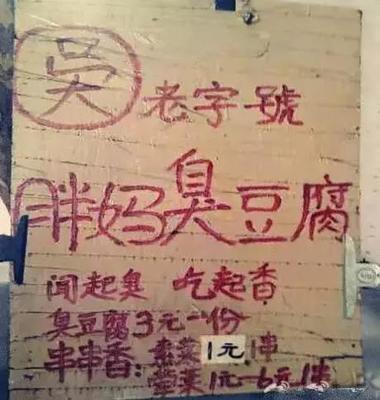 吴 老字號
胖妈臭豆腐
闻起臭 吃起香
臭豆腐3元一份
串串香：素菜1元1串
荤菜1元—6元1串